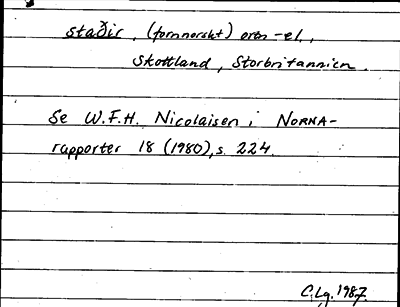 staðir, (fornnorskt) ortn -el.,
Skottland, Storbritannien.
Se W.F.H. Nicolaisen i NORNA-
rapporter 18 (1980), s. 224.
C. Lg. 1987.